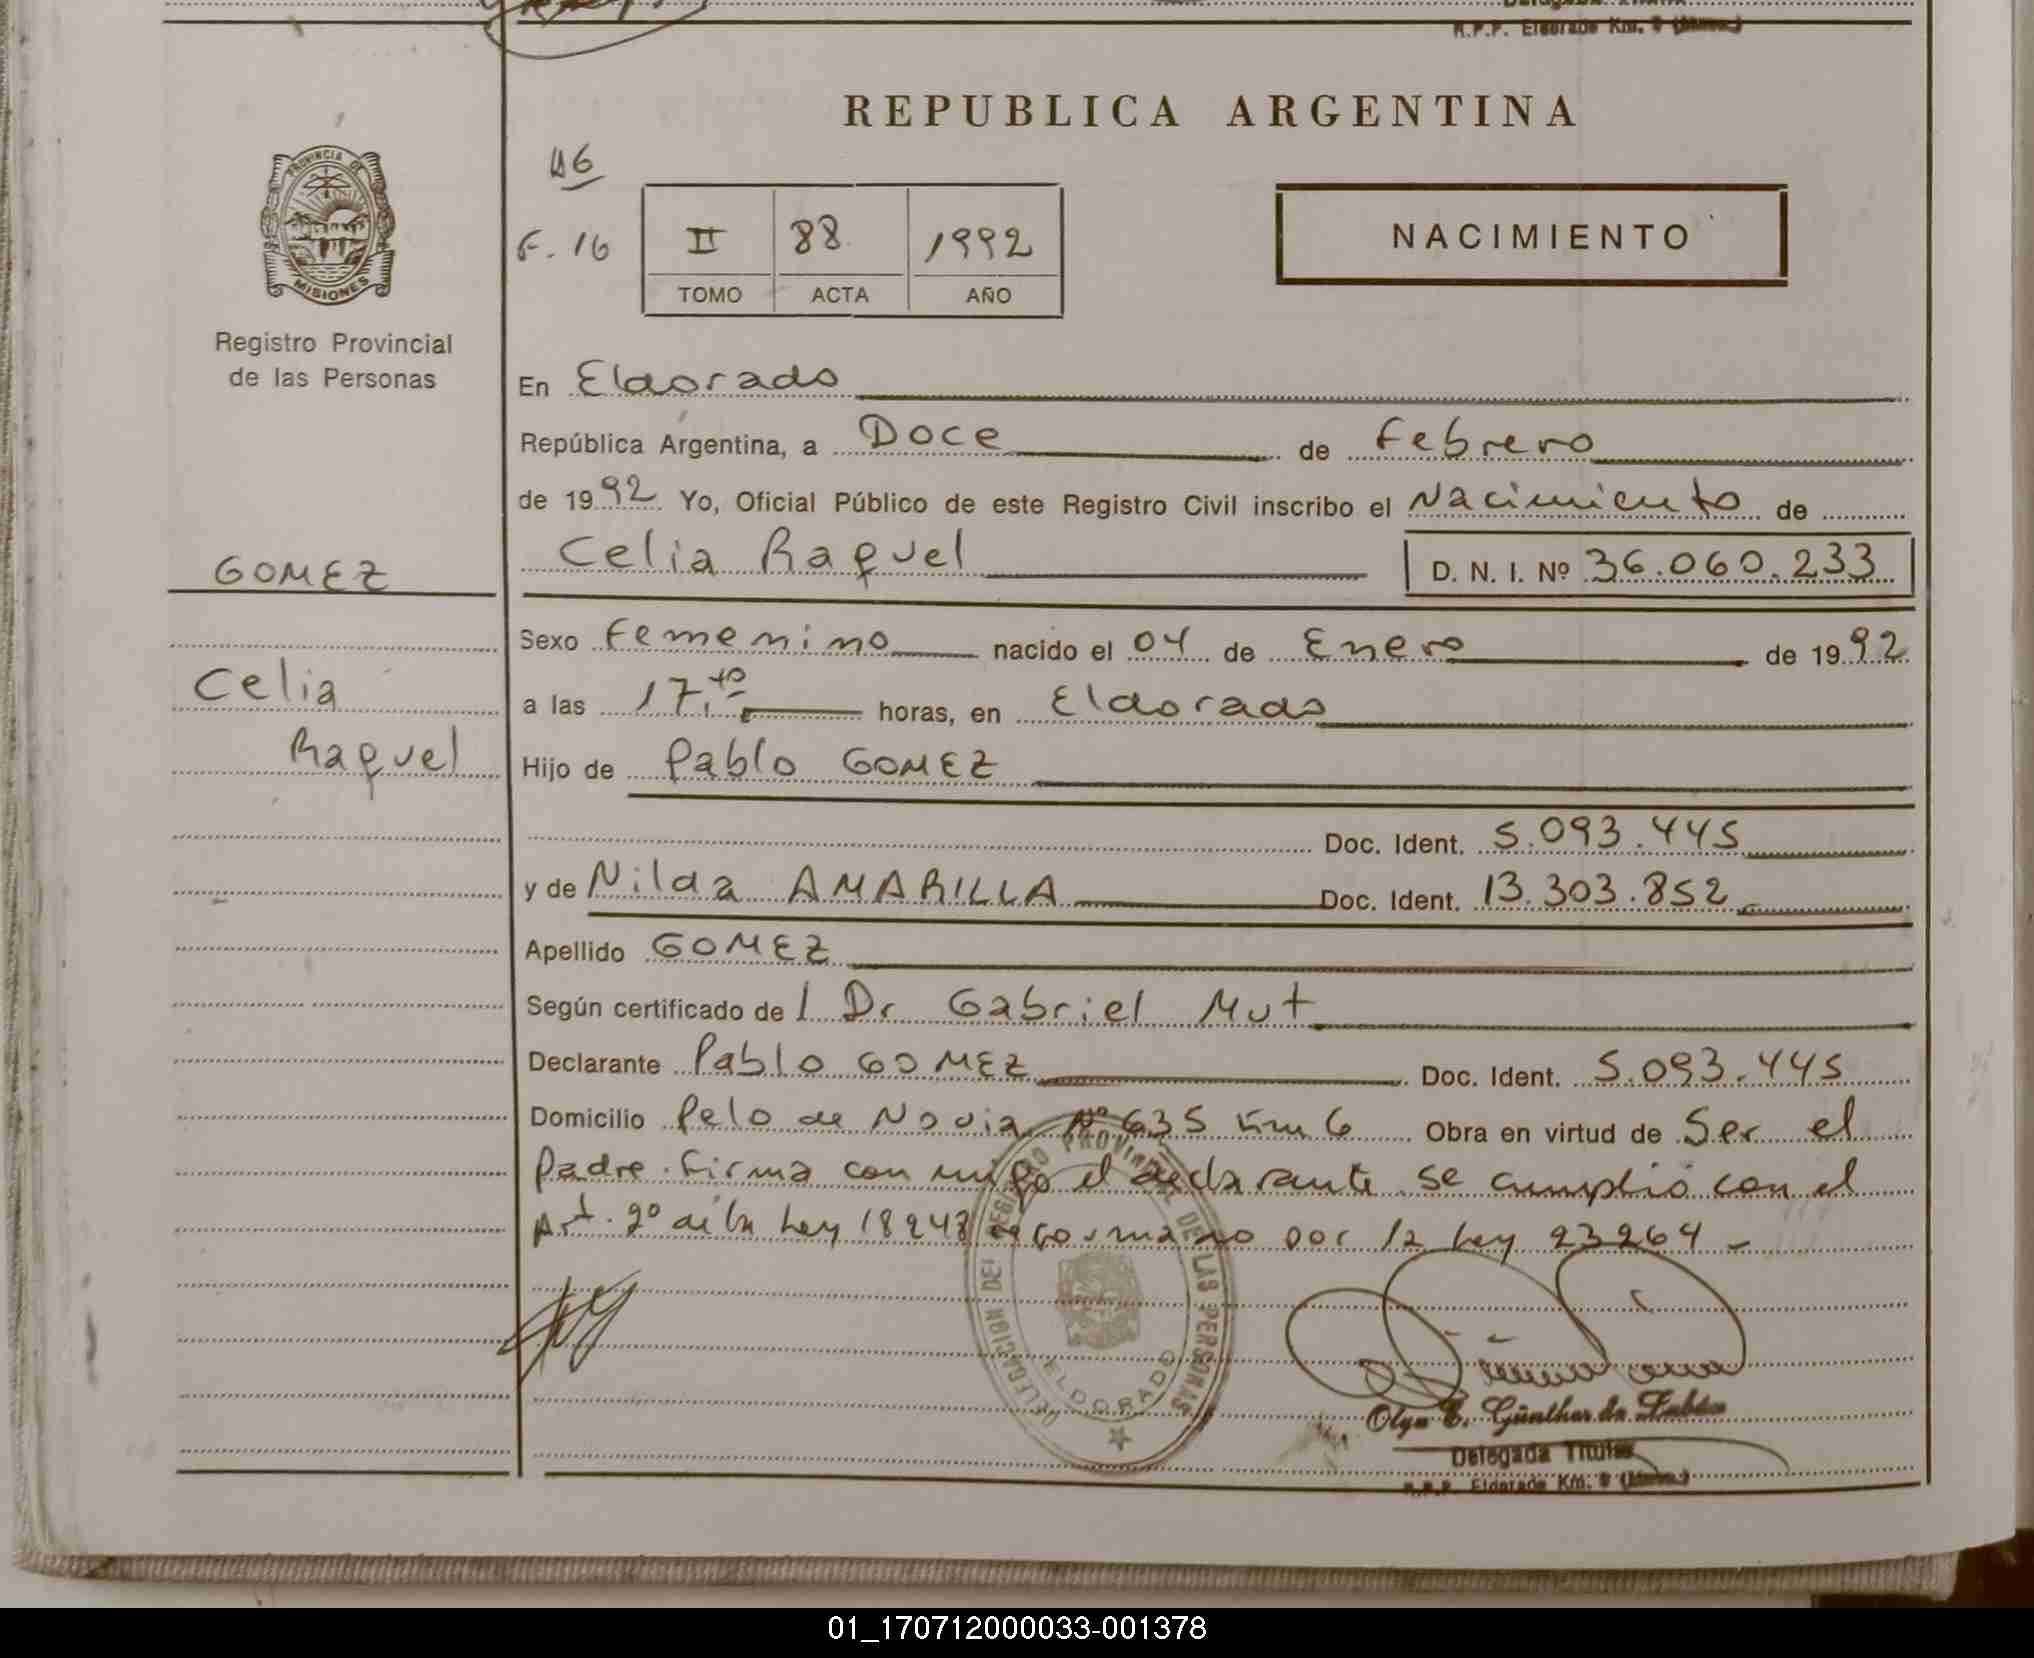 R.P.P. Eldorado Km. 9 (Mnes.)
REPUBLICA ARGENTINA
PROVINCIA DE
MISIONES
Registro Provincial
de las Personas
46
F. 16
II 88 1992
TOMO ACTA AÑO
NACIMIENTO
En Eldorado
República Argentina, a Doce de Febrero
de 1992 Yo, Oficial Público de este Registro Civil inscribo el Nacimiento de
GOMEZ
Celia Raquel D. N. I. Nº 36.060.233
Sexo Femenino nacido el 04 de Enero de 1992
Celia
a las 17, horas, en Eldorado
Raquel
Hijo de Pablo GOMEZ
Doc. Ident. 5.093.445
y de Nilda AMARILLA Doc. Ident. 13.303.852
Apellido GOMEZ
Según certificado de l Dr Gabriel Mut
Declarante Pablo GOMEZ Doc. Ident. 5.093.445
Domicilio Pelo de Novia Nº 635 Km 6 Obra en virtud de Ser el
Padre. Firma con migo el declarante se cumplió con el
Art. 2º de la Ley 18248 reformado por la Ley 23264 -
DELEGACION DEL REGISTRO PROVINCIAL DE LAS PERSONAS
ELDORADO
Olga E. Günther de
Delegada Titular
R.P.P. Eldorado Km. 9 (Mnes.)
01_170712000033-001378